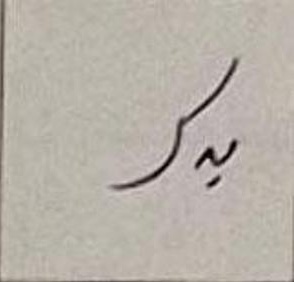 یدک